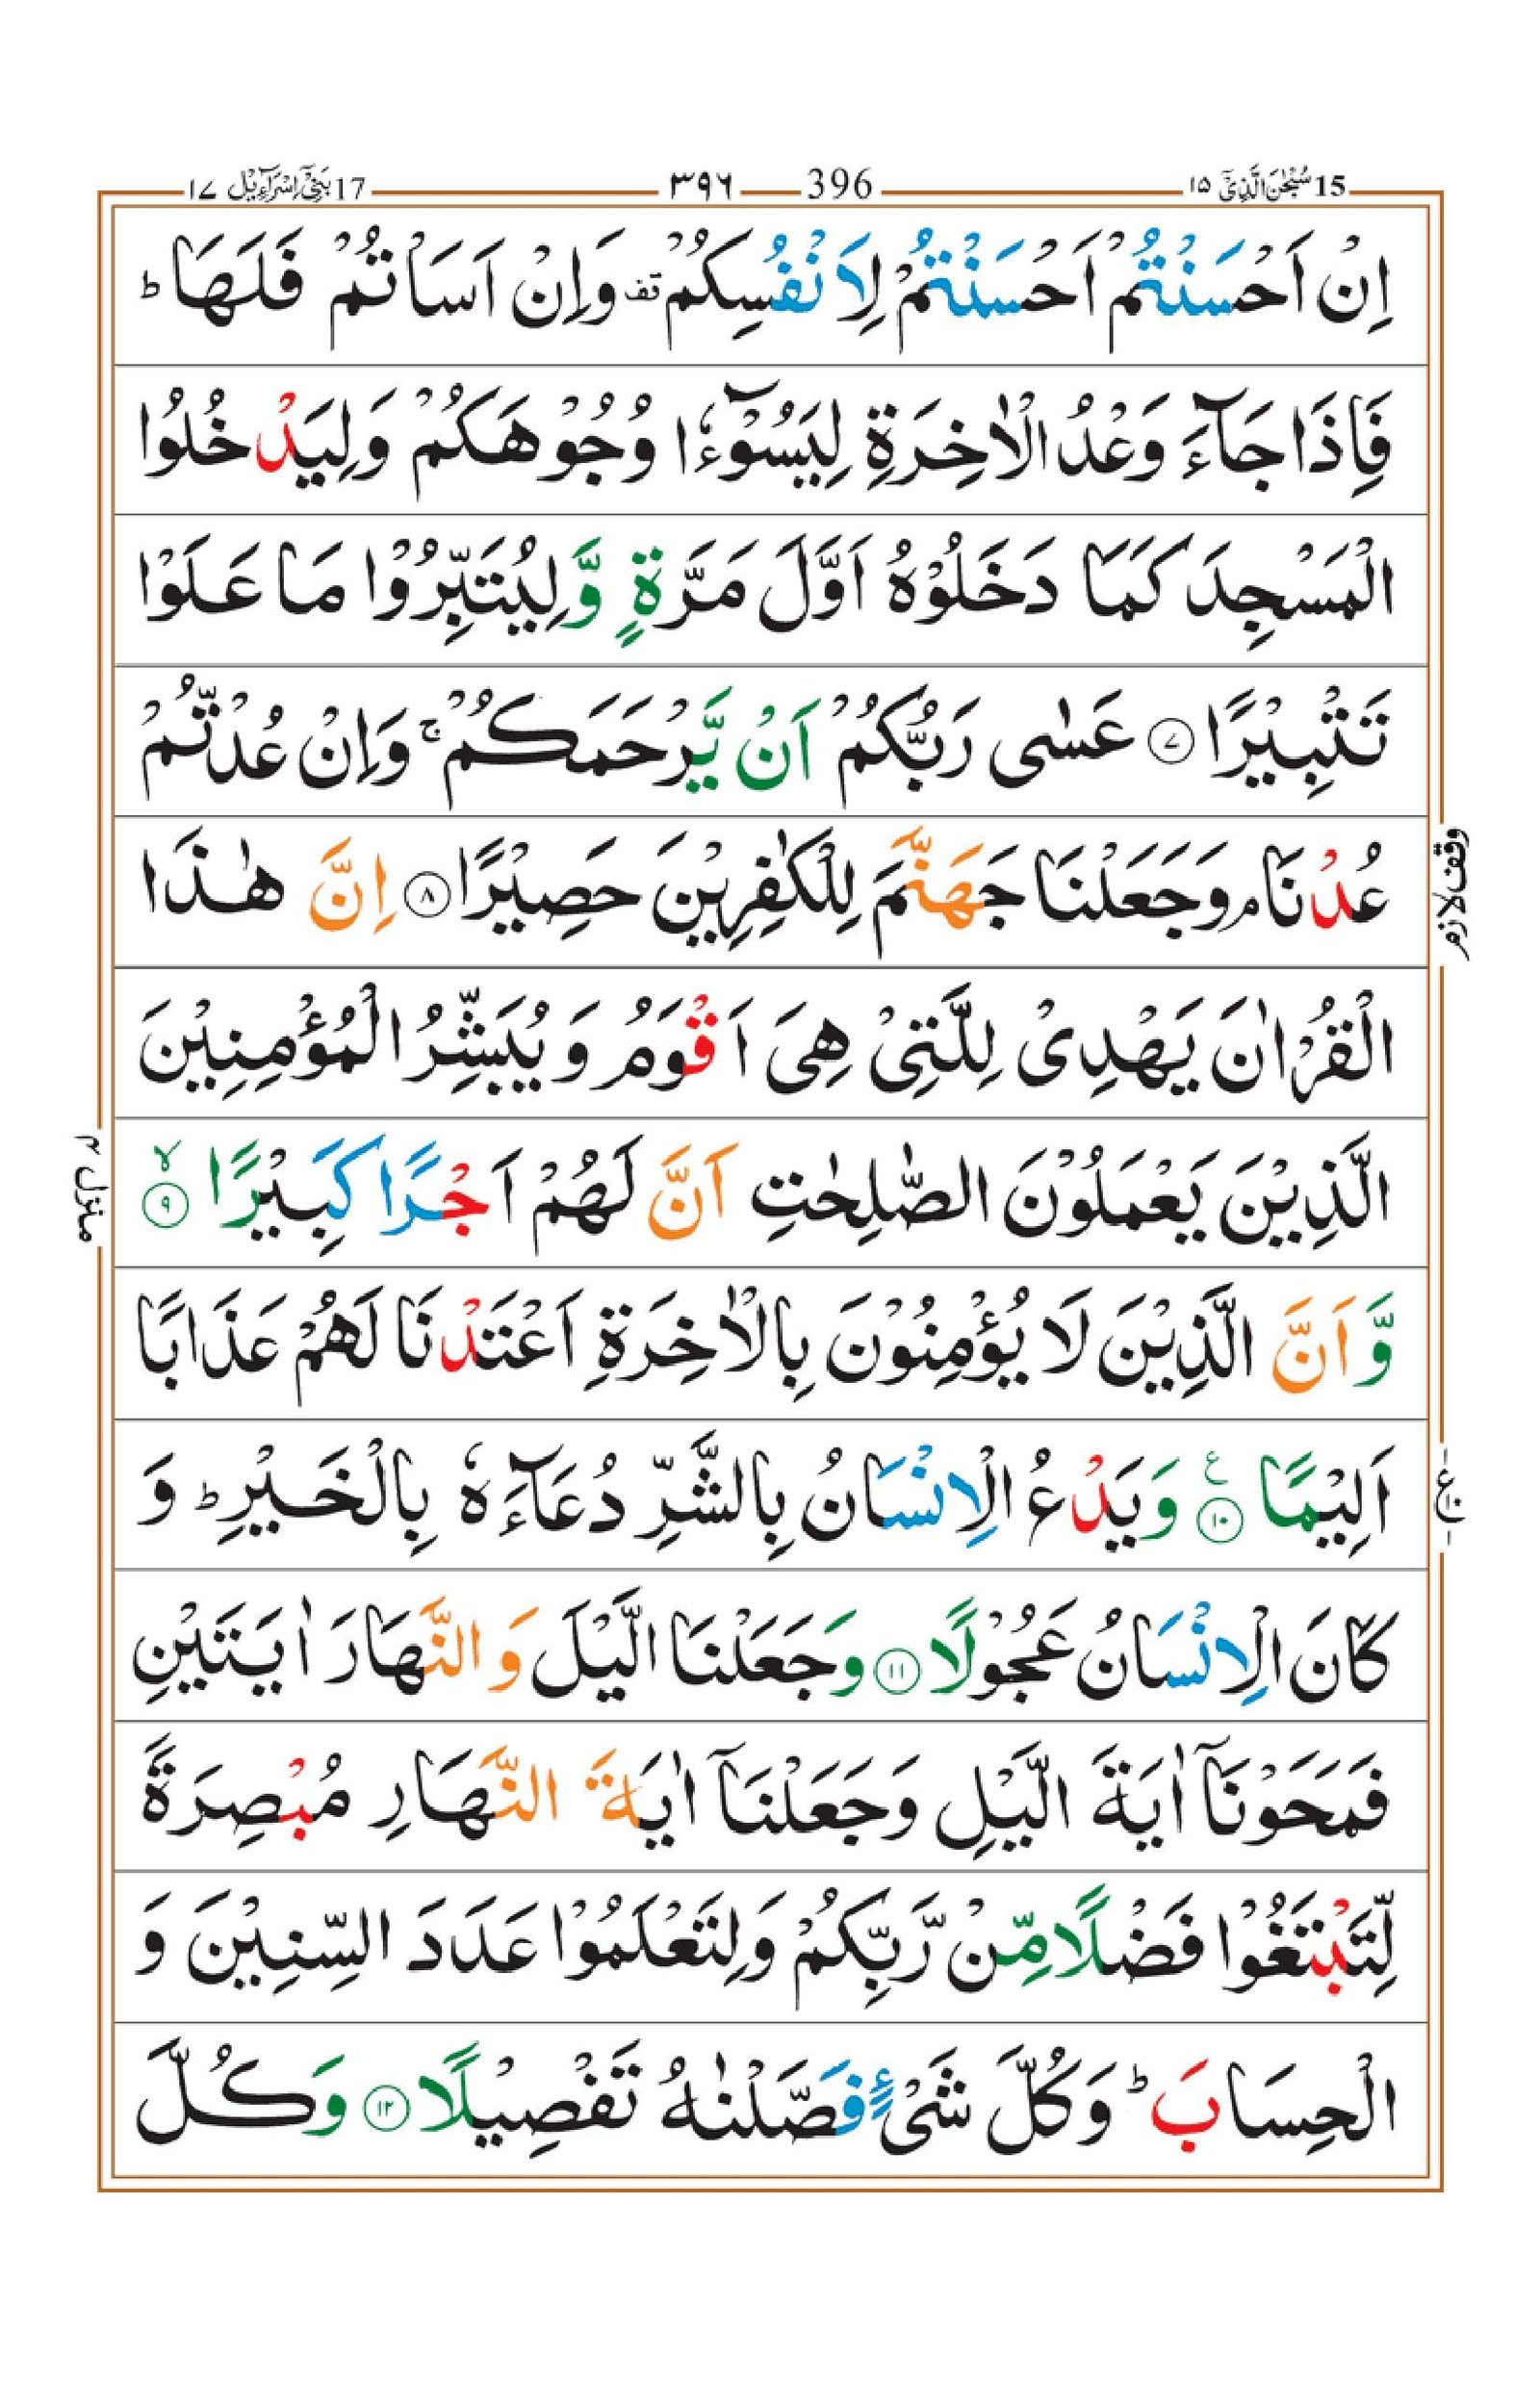 15 سُبْحٰنَ الَّذِیْۤ ١٥ 396 ٣٩٦ 17 بَنِیْۤ اِسْرَآءِیْل ١٧
اِنْ اَحْسَنْتُمْ اَحْسَنْتُمْ لِاَنْفُسِكُمْ قف وَاِنْ اَسَاْتُمْ فَلَهَا ؕ
فَاِذَا جَآءَ وَعْدُ الْاٰخِرَةِ لِیَسُوْٓءٗا وُجُوْهَكُمْ وَلِیَدْخُلُوا
الْمَسْجِدَ كَمَا دَخَلُوْهُ اَوَّلَ مَرَّةٍ وَّلِیُتَبِّرُوْا مَا عَلَوْا
تَتْبِیْرًا ۝٧ عَسٰی رَبُّكُمْ اَنْ یَّرْحَمَكُمْ ۚ وَاِنْ عُدْتُّمْ
عُدْنَا ۘ وَجَعَلْنَا جَهَنَّمَ لِلْكٰفِرِیْنَ حَصِیْرًا ۝٨ اِنَّ هٰذَا
وقف لازم
الْقُرْاٰنَ یَهْدِیْ لِلَّتِیْ هِیَ اَقْوَمُ وَ یُبَشِّرُ الْمُؤْمِنِیْنَ
الَّذِیْنَ یَعْمَلُوْنَ الصّٰلِحٰتِ اَنَّ لَهُمْ اَجْرًا كَبِیْرًا ۙ۝٩
منزل ٤
وَّ اَنَّ الَّذِیْنَ لَا یُؤْمِنُوْنَ بِالْاٰخِرَةِ اَعْتَدْنَا لَهُمْ عَذَابًا
اَلِیْمًا ۝١٠ ع وَیَدْعُ الْاِنْسَانُ بِالشَّرِّ دُعَآءَهٗ بِالْخَیْرِ ؕ وَ
كَانَ الْاِنْسَانُ عَجُوْلًا ۝١١ وَجَعَلْنَا الَّیْلَ وَ النَّهَارَ اٰیَتَیْنِ
فَمَحَوْنَاۤ اٰیَةَ الَّیْلِ وَجَعَلْنَاۤ اٰیَةَ النَّهَارِ مُبْصِرَةً
لِّتَبْتَغُوْا فَضْلًا مِّنْ رَّبِّكُمْ وَلِتَعْلَمُوْا عَدَدَ السِّنِیْنَ وَ
الْحِسَابَ ؕ وَكُلَّ شَیْءٍ فَصَّلْنٰهُ تَفْصِیْلًا ۝١٢ وَكُلَّ